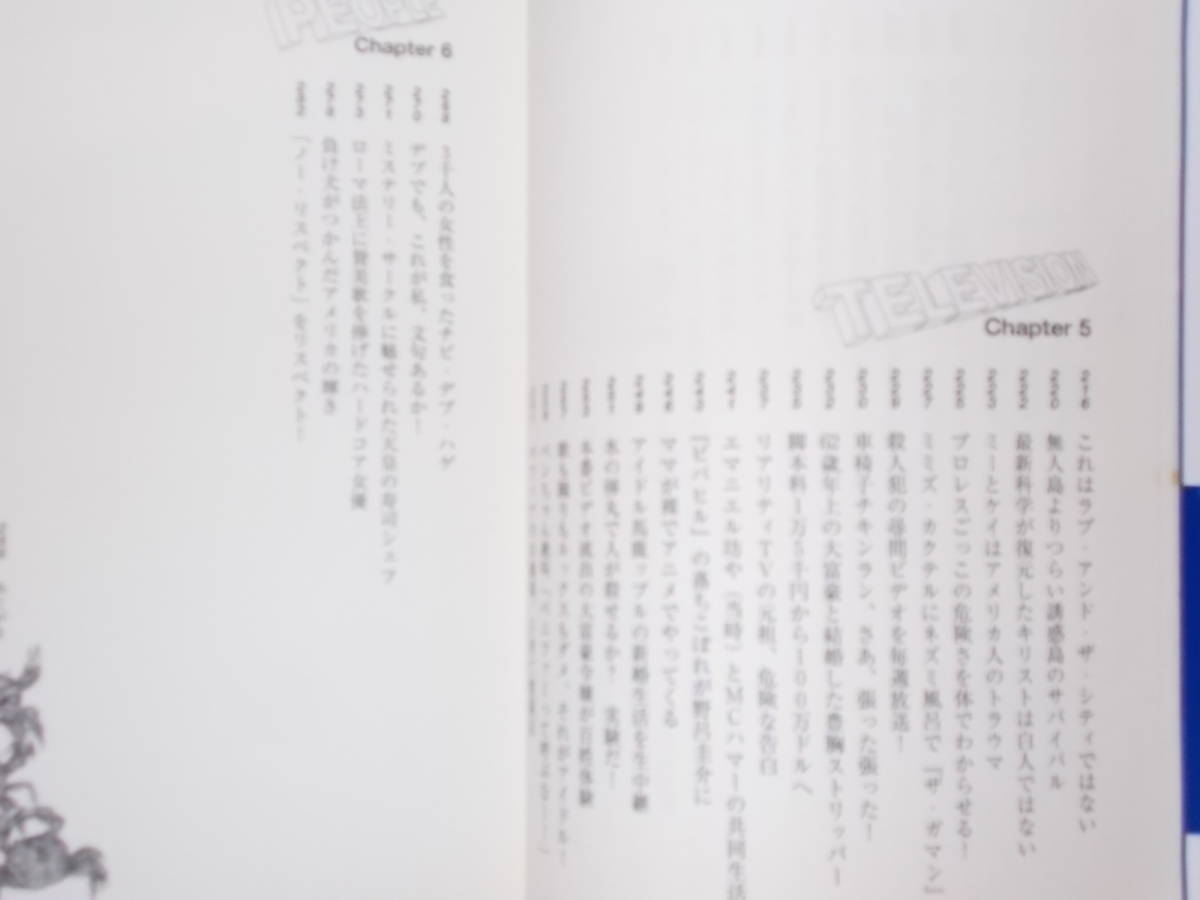 TELEVISION
Chapter 5
216 これはラブ・アンド・ザ・シティではない
220 無人島よりつらい誘惑島のサバイバル
222 最新科学が復元したキリストは白人ではない
223 ミーとケイはアメリカ人のトラウマ
225 プロレスごっこの危険さを体でわからせる!
227 ミミズ・カクテルにネズミ風呂で『ザ・ガマン』
228 殺人犯の尋問ビデオを毎週放送!
230 車椅子チキンラン、さあ、張った張った!
232 62歳年上の大富豪と結婚した豊胸ストリッパー
脚本料1万5千円から100万ドルへ
237 リアリティTVの元祖、危険な告白
241 エマニエル坊や(当時)とMCハマーの共同生活
『ビバヒル』の落ちこぼれが野呂圭介に
ママが裸でアニメでやってくる
アイドル馬鹿ップルの新婚生活を生中継
251 氷の弾丸で人が殺せるか? 実験だ!
本番ビデオ流出の大富豪令嬢が百姓体験
歌も踊りもルックスもダメ、それがアイドル!
PEOPLE
Chapter 6
268 3千人の女性を食ったチビ・デブ・ハゲ
270 デブでも、これが私、文句あるか!
271 ミステリー・サークルに魅せられた天皇の寿司シェフ
273 ローマ法王に賛美歌を捧げたハードコア女優
負け犬がつかんだアメリカの輝き
「ノー・リスペクト」をリスペクト!